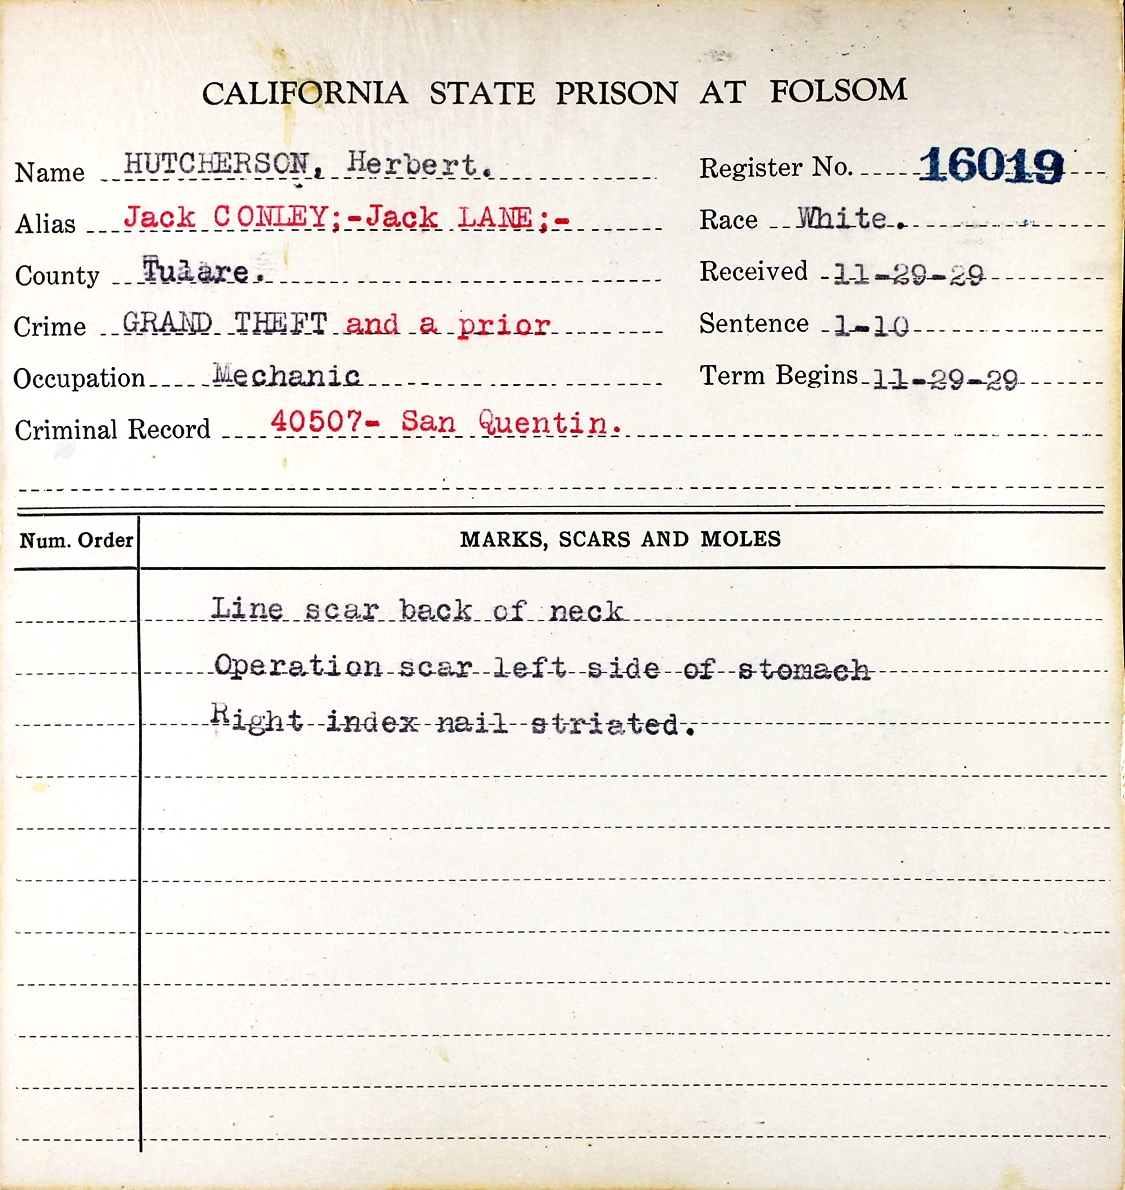 CALIFORNIA STATE PRISON AT FOLSOM
Name HUTCHERSON, Herbert. Register No. 16019
Alias Jack CONLEY;-Jack LANE;- Race White.
County Tulare. Received 11-29-29
Crime GRAND THEFT and a prior Sentence 1-10
Occupation Mechanic Term Begins 11-29-29
Criminal Record 40507- San Quentin.
Num. Order MARKS, SCARS AND MOLES
Line scar back of neck
Operation scar left side of stomach
Right index nail striated.